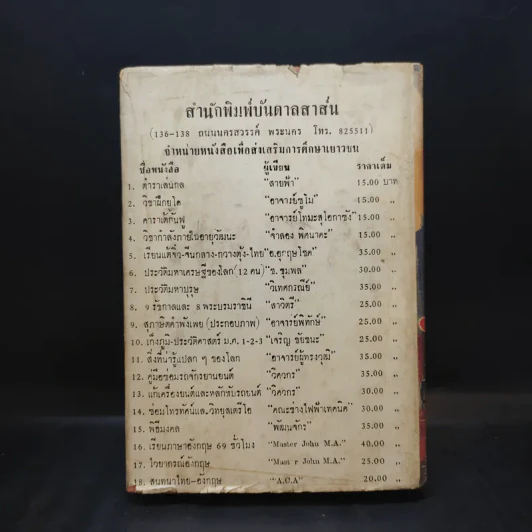 สำนักพิมพ์บันดาลสาส์น
(136-138 ถนนนครสวรรค์ พระนคร โทร. 825511)
จำหน่ายหนังสือเพื่อส่งเสริมการศึกษาเยาวชน
ชื่อหนังสือ ผู้เขียน ราคาเต็ม
1. ตำราเล่นกล "สายฟ้า" 15.00 บาท
2. วิชาฝึกยูโด "อาจารย์ซูโม่" 15.00 ,,
3. คาราเต้กังฟู "อาจารย์โทมะสุโอกาซัง" 15.00 ,,
4. วิชากำลังภายในอายุวัฒนะ "จำลอง พิศนาคะ" 15.00 ,,
5. เรียนแต้จิ๋ว-จีนกลาง-กวางตุ้ง-ไทย "อ.อุกฤษโชค" 35.00 ,,
6. ประวัติมหาเศรษฐีของโลก (12 คน) "ช. ชุมพล" 30.00 ,,
7. ประวัติมหาบุรุษ "วิเทศกรณีย์" 35.00 ,,
8. 9 รัชกาลและ 8 พระบรมราชินี "สาวิตรี" 25.00 ,,
9. สุภาษิตคำพังเพย (ประกอบภาพ) "อาจารย์พิทักษ์" 25.00 ,,
10. เก็งภูมิ-ประวัติศาสตร์ ม.ศ. 1-2-3 "เจริญ ชัยชนะ" 25.00 ,,
11. สิ่งที่น่ารู้แปลก ๆ ของโลก "อาจารย์ผู้ทรงวุฒิ" 35.00 ,,
12. คู่มือซ่อมรถจักรยานยนต์ "วิศวกร" 35.00 ,,
13. แก้เครื่องยนต์และหลักขับรถยนต์ "วิศวกร" 30.00 ,,
14. ซ่อมโทรทัศน์และวิทยุสเตริโอ "คณะช่างไฟฟ้าเทคนิค" 30.00 ,,
15. พิธีมงคล "พัฒนจักร" 35.00 ,,
16. เรียนภาษาอังกฤษ 69 ชั่วโมง "Master John M.A." 40.00 ,,
17. ไวยากรณ์อังกฤษ "Mast r John M.A." 25.00 ,,
18. สนทนาไทย-อังกฤษ "A.C.A" 20.00 ,,